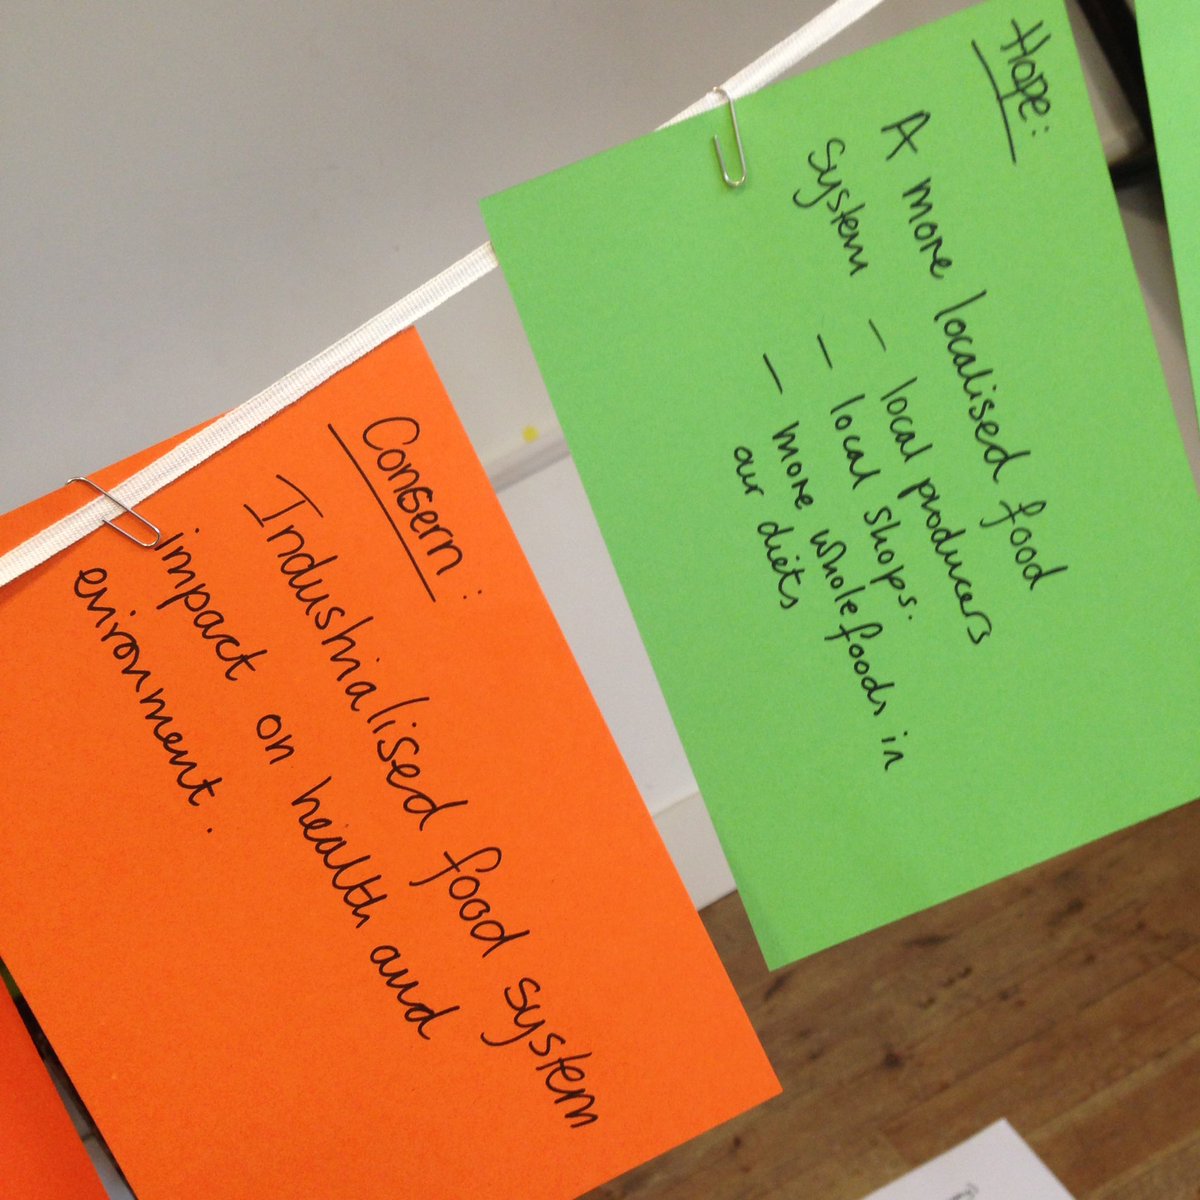 Hope:
A more localised food
system - local producers
- local shops.
- more wholefoods in
our diets
Concern:
Industrialised food system
impact on health and
environment.